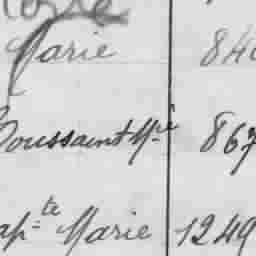 Marie 840
Toussaint Mie 867
apte Marie 1249